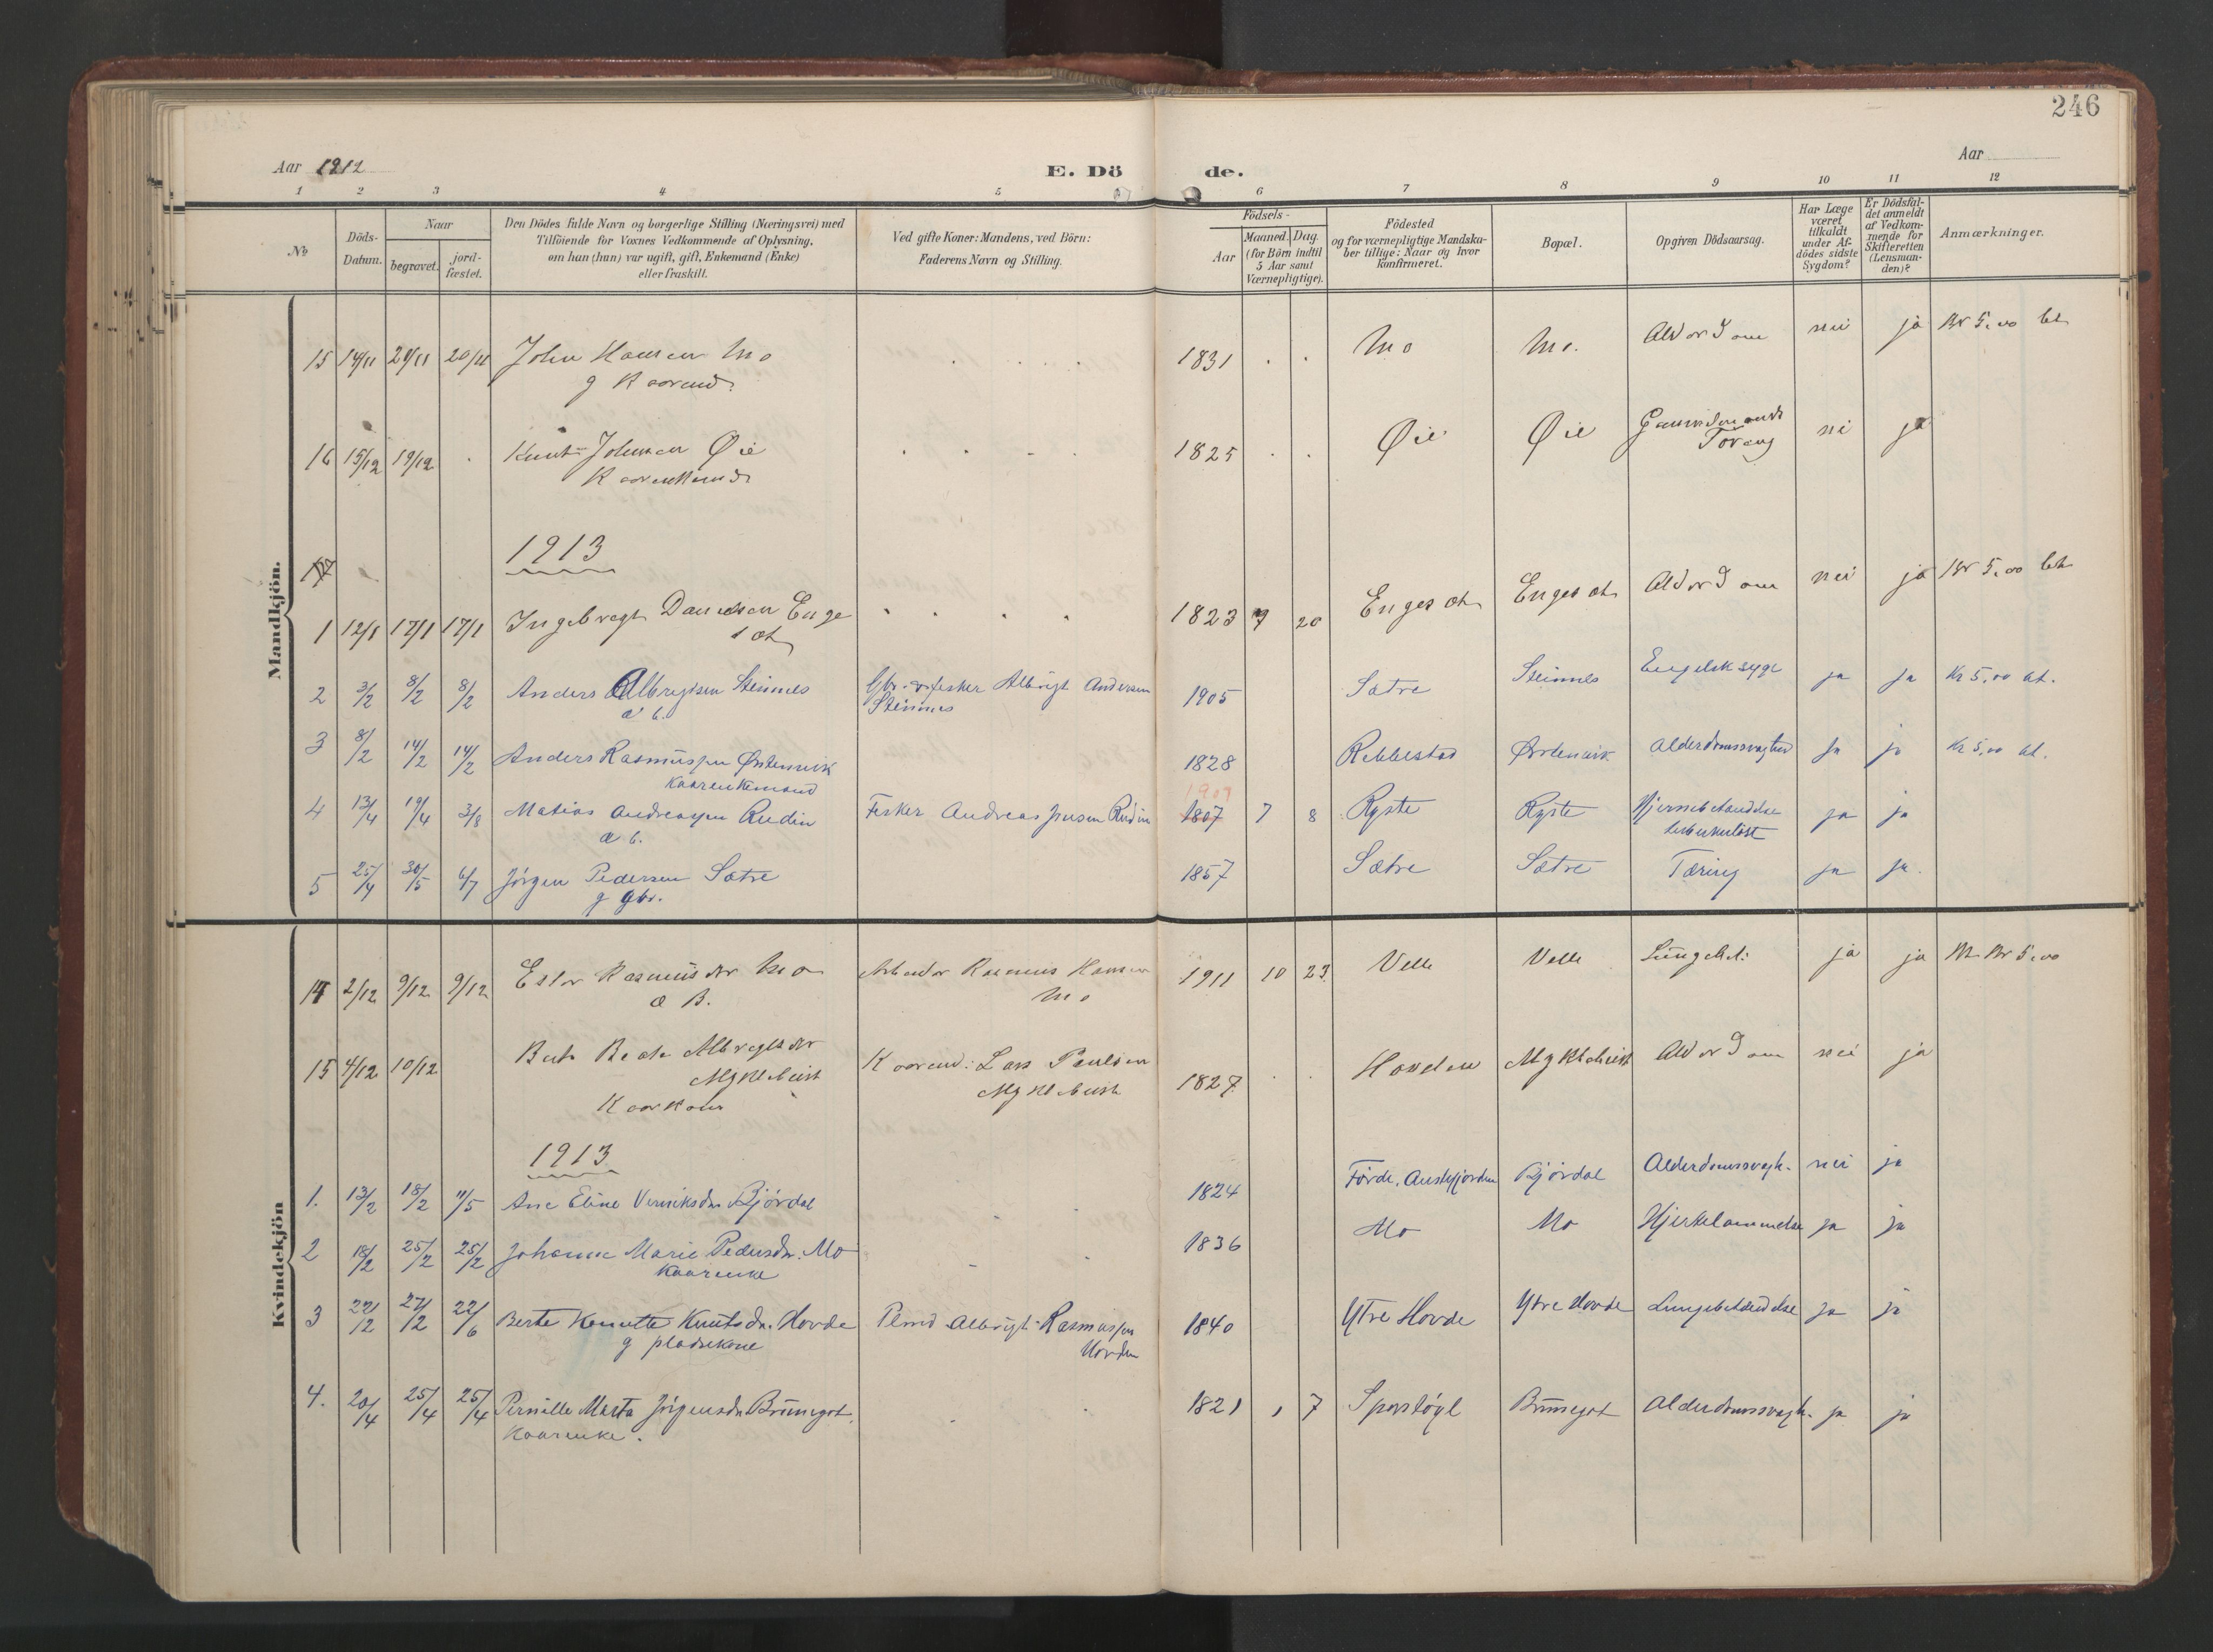 246
Aar 1912
E. Dö
de.
Aar
1 2 3 4 5 6 7 8 9 10 11 12
No
Döds-Datum.
Naar
begravet.
jord-fæstet.
Den Dödes fulde Navn og borgerlige Stilling (Næringsvei) med
Tilföiende for Voxnes Vedkommende af Oplysning,
om han (hun) var ugift, gift, Enkemand (Enke)
eller fraskilt.
Ved gifte Koner: Mandens, ved Börn:
Faderens Navn og Stilling.
Födsels-
Aar
Maaned. Dag.
(for Börn indtil
5 Aar samt
Værnepligtige).
Födested
og for værnepligtige Mandska-
ber tillige: Naar og hvor
konfirmeret.
Bopæl.
Opgiven Dödsaarsag.
Har Læge
været
tilkaldt
under Af-
dödes sidste
Sygdom?
Er Dödsfal-
det anmeldt
af Vedkom-
mende for
Skifteretten
(Lensman-
den)?
Anmærkninger.
Mandkjön.
15 14/11 20/11 20/11 John Hansen Mo 1831 Mo Mo. Alderdom nei ja Kr 5,00 bet
g Kaarmd.
16 15/12 19/12 Knut Johnsen Øie 1825 Øie Øie nei ja
Kaarenkemd.
1913
1 12/1 17/1 17/1 Ingebregt Danielsen Enge 1823 9 20 Engeset Engeset Alderdom nei ja Kr 5,00 bet
set
2 3/2 8/2 8/2 Anders Albregtsen Steinnes Gbr. og fisker Albrigt Andersen 1905 Sætre Steinnes Engelsk syge ja ja Kr 5,00 bt.
æ b. Steinnes
3 8/2 14/2 14/2 Anders Rasmussen Østensvik 1828 Rebbestad Østensvik Alderdomssvaghed ja ja Kr 5,00 bt.
Kaarenkemand
4 13/4 19/4 3/8 Matias Andreassen Rudin Fisker Andreas Jensen Rudin 1907 1807 7 8 Ryste Ryste Hjernebetændelse ja ja
æ b. tuberkuløst
5 25/4 30/5 6/7 Jörgen Pedersen Sætre 1857 Sætre Sætre Tæring ja ja.
g gbr.
Kvindekjön
14 2/12 9/12 9/12 Ester Rasmusdtr Mo Arbeider Rasmus Hansen 1911 10 23 Velle Velle Lungebet. ja ja Kr 5,00
æ B. Mo
15 4/12 10/12 Berte Beate Albregtsdtr Kaarmd: Lars Paulsen 1827 Hovden Myklebust Alderdom nei ja
Myklebust Myklebust
Kaarkone
1913
1. 13/2 18/2 11/5 Ane Eline Bjørdal 1824 Førde, Austefjorden Bjørdal Alderdomssvagh. nei ja
2 18/2 25/2 25/2 Johanne Marie Pedersdr. Mo 1836 Mo Mo Hjertelammelse ja ja
Kaarenke
3 22/2 27/2 22/6 Berte Knutsdr. Hovde Albrigt Rasmussen 1840 Ytre Hovde Ytre Hovde Lungebetændelse ja ja
g pladsekone Hovden
4. 20/4 25/4 25/4 Pernille Marta Jörgensdr Brunegot. 1821 1 7 Brunegot Alderdomssvagh. ja ja
Kaarenke.